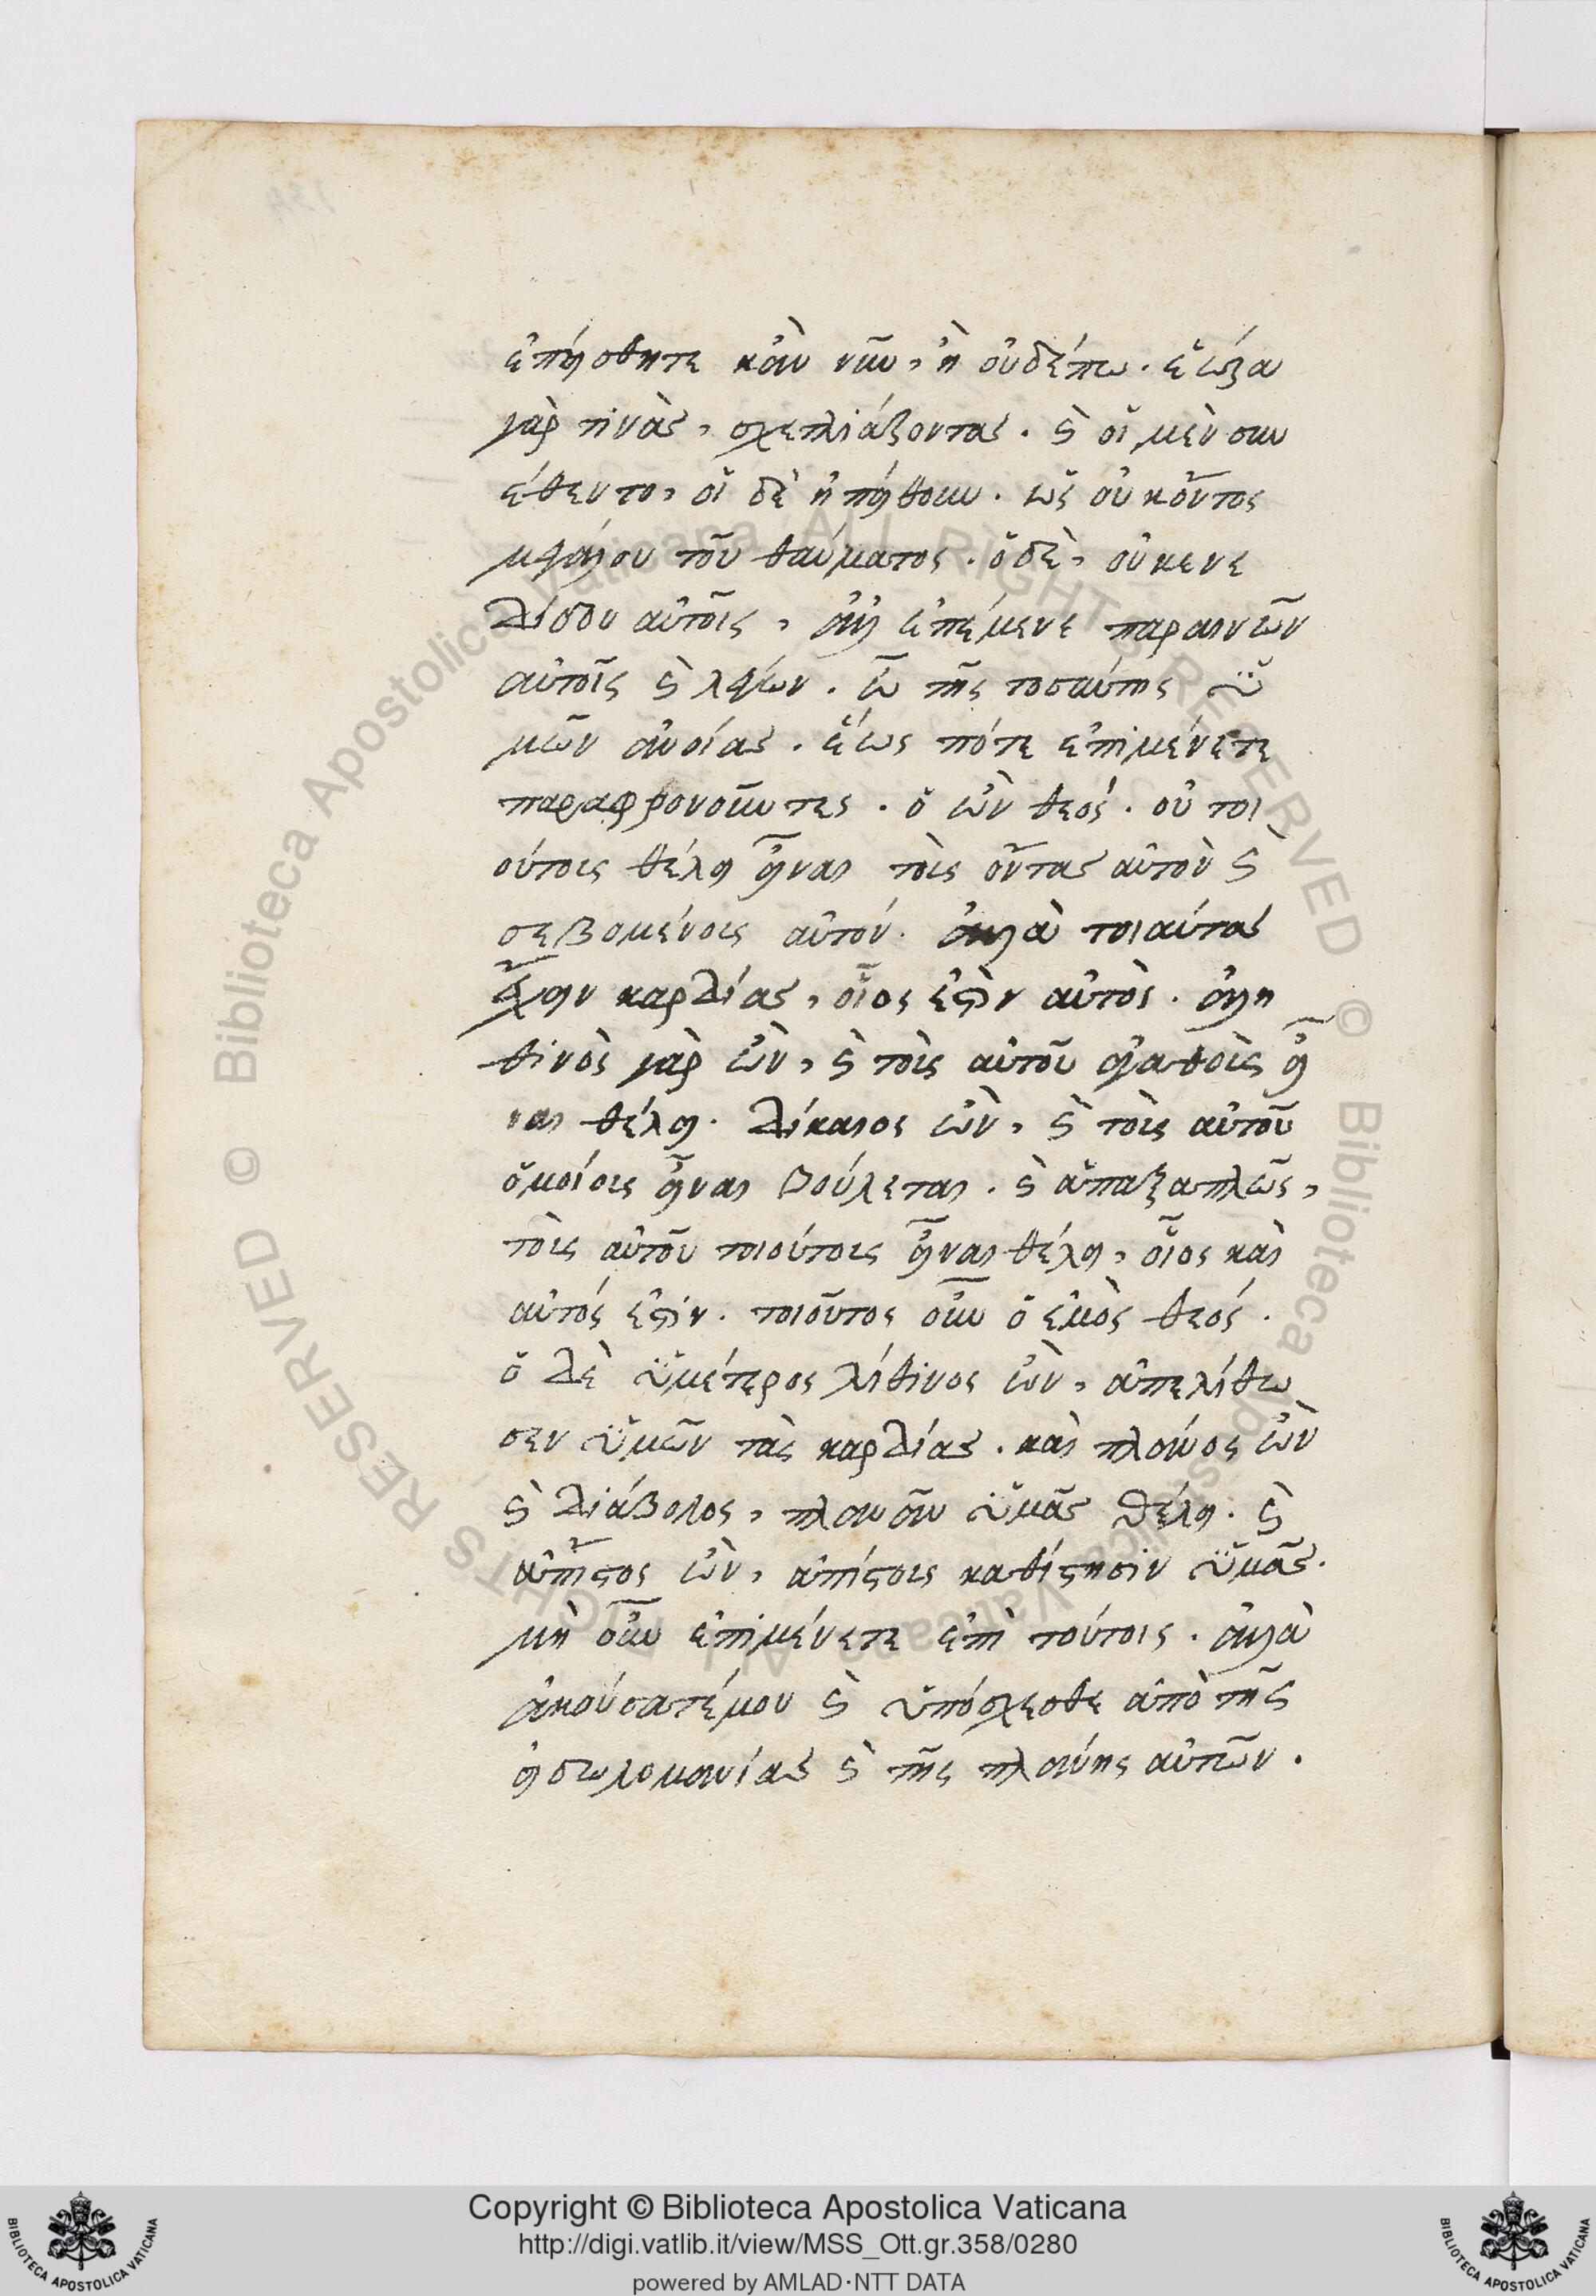 ἐπείσθητε κἂν νῦν, ἢ οὐδέπω. ἑώρα
γὰρ τινὰς, σχετλιάζοντας. καὶ οἱ μὲν συν
έθεντο, οἱ δὲ ἠπείθουν. ὡς οὐκ ὄντος
μεγάλου τοῦ θαύματος. ὁ δὲ, οὐκ ἐνε
δίδου αὐτοῖς, ἀλλ' ἐπέμενε παραινῶν
αὐτοῖς καὶ λέγων. ὢ τῆς τοσαύτης ὑ
μῶν ἀνοίας. ἕως πότε ἐπιμένετε
παραφρονοῦντες. ὁ ὢν θεός. οὐ τοι
ούτους θέλει εἶναι τοὺς ὄντας αὐτοῦ καὶ
σεβομένους αὐτόν. ἀλλὰ τοιαύτας
ἔχειν καρδίας, οἷος ἐστὶν αὐτὸς. ἀλη
θινὸς γὰρ ὢν, καὶ τοὺς αὐτοῦ ἀγαθοὺς εἶ
ναι θέλει. δίκαιος ὢν, καὶ τοὺς αὐτοῦ
ὁμοίους εἶναι βούλεται. καὶ ἅπαξ ἁπλῶς,
τοὺς αὐτοῦ τοιούτους εἶναι θέλει, οἷος καὶ
αὐτός ἐστιν. τοιοῦτος οὖν ὁ ἐμὸς θεός.
ὁ δὲ ὑμέτερος λίθινος ὢν, ἀπελίθω
σεν ὑμῶν τὰς καρδίας. καὶ πλάνος ὢν
καὶ διάβολος, πλανᾶν ὑμᾶς θέλει. καὶ
ἄπιστος ὢν, ἀπίστους καθίστησιν ὑμᾶς.
μὴ οὖν ἐπιμένετε ἐπὶ τούτοις. ἀλλὰ
ἀκούσατέ μου καὶ ὑπόσχεσθε ἀπὸ τῆς
εἰδωλομανίας καὶ τῆς πλάνης αὐτῶν.
© Biblioteca Apostolica Vaticana ALL RIGHTS RESERVED
© Biblioteca Apostolica Vaticana ALL RIGHTS RESERVED
Copyright © Biblioteca Apostolica Vaticana
http://digi.vatlib.it/view/MSS_Ott.gr.358/0280
powered by AMLAD·NTT DATA
BIBLIOTECA APOSTOLICA VATICANA
BIBLIOTECA APOSTOLICA VATICANA